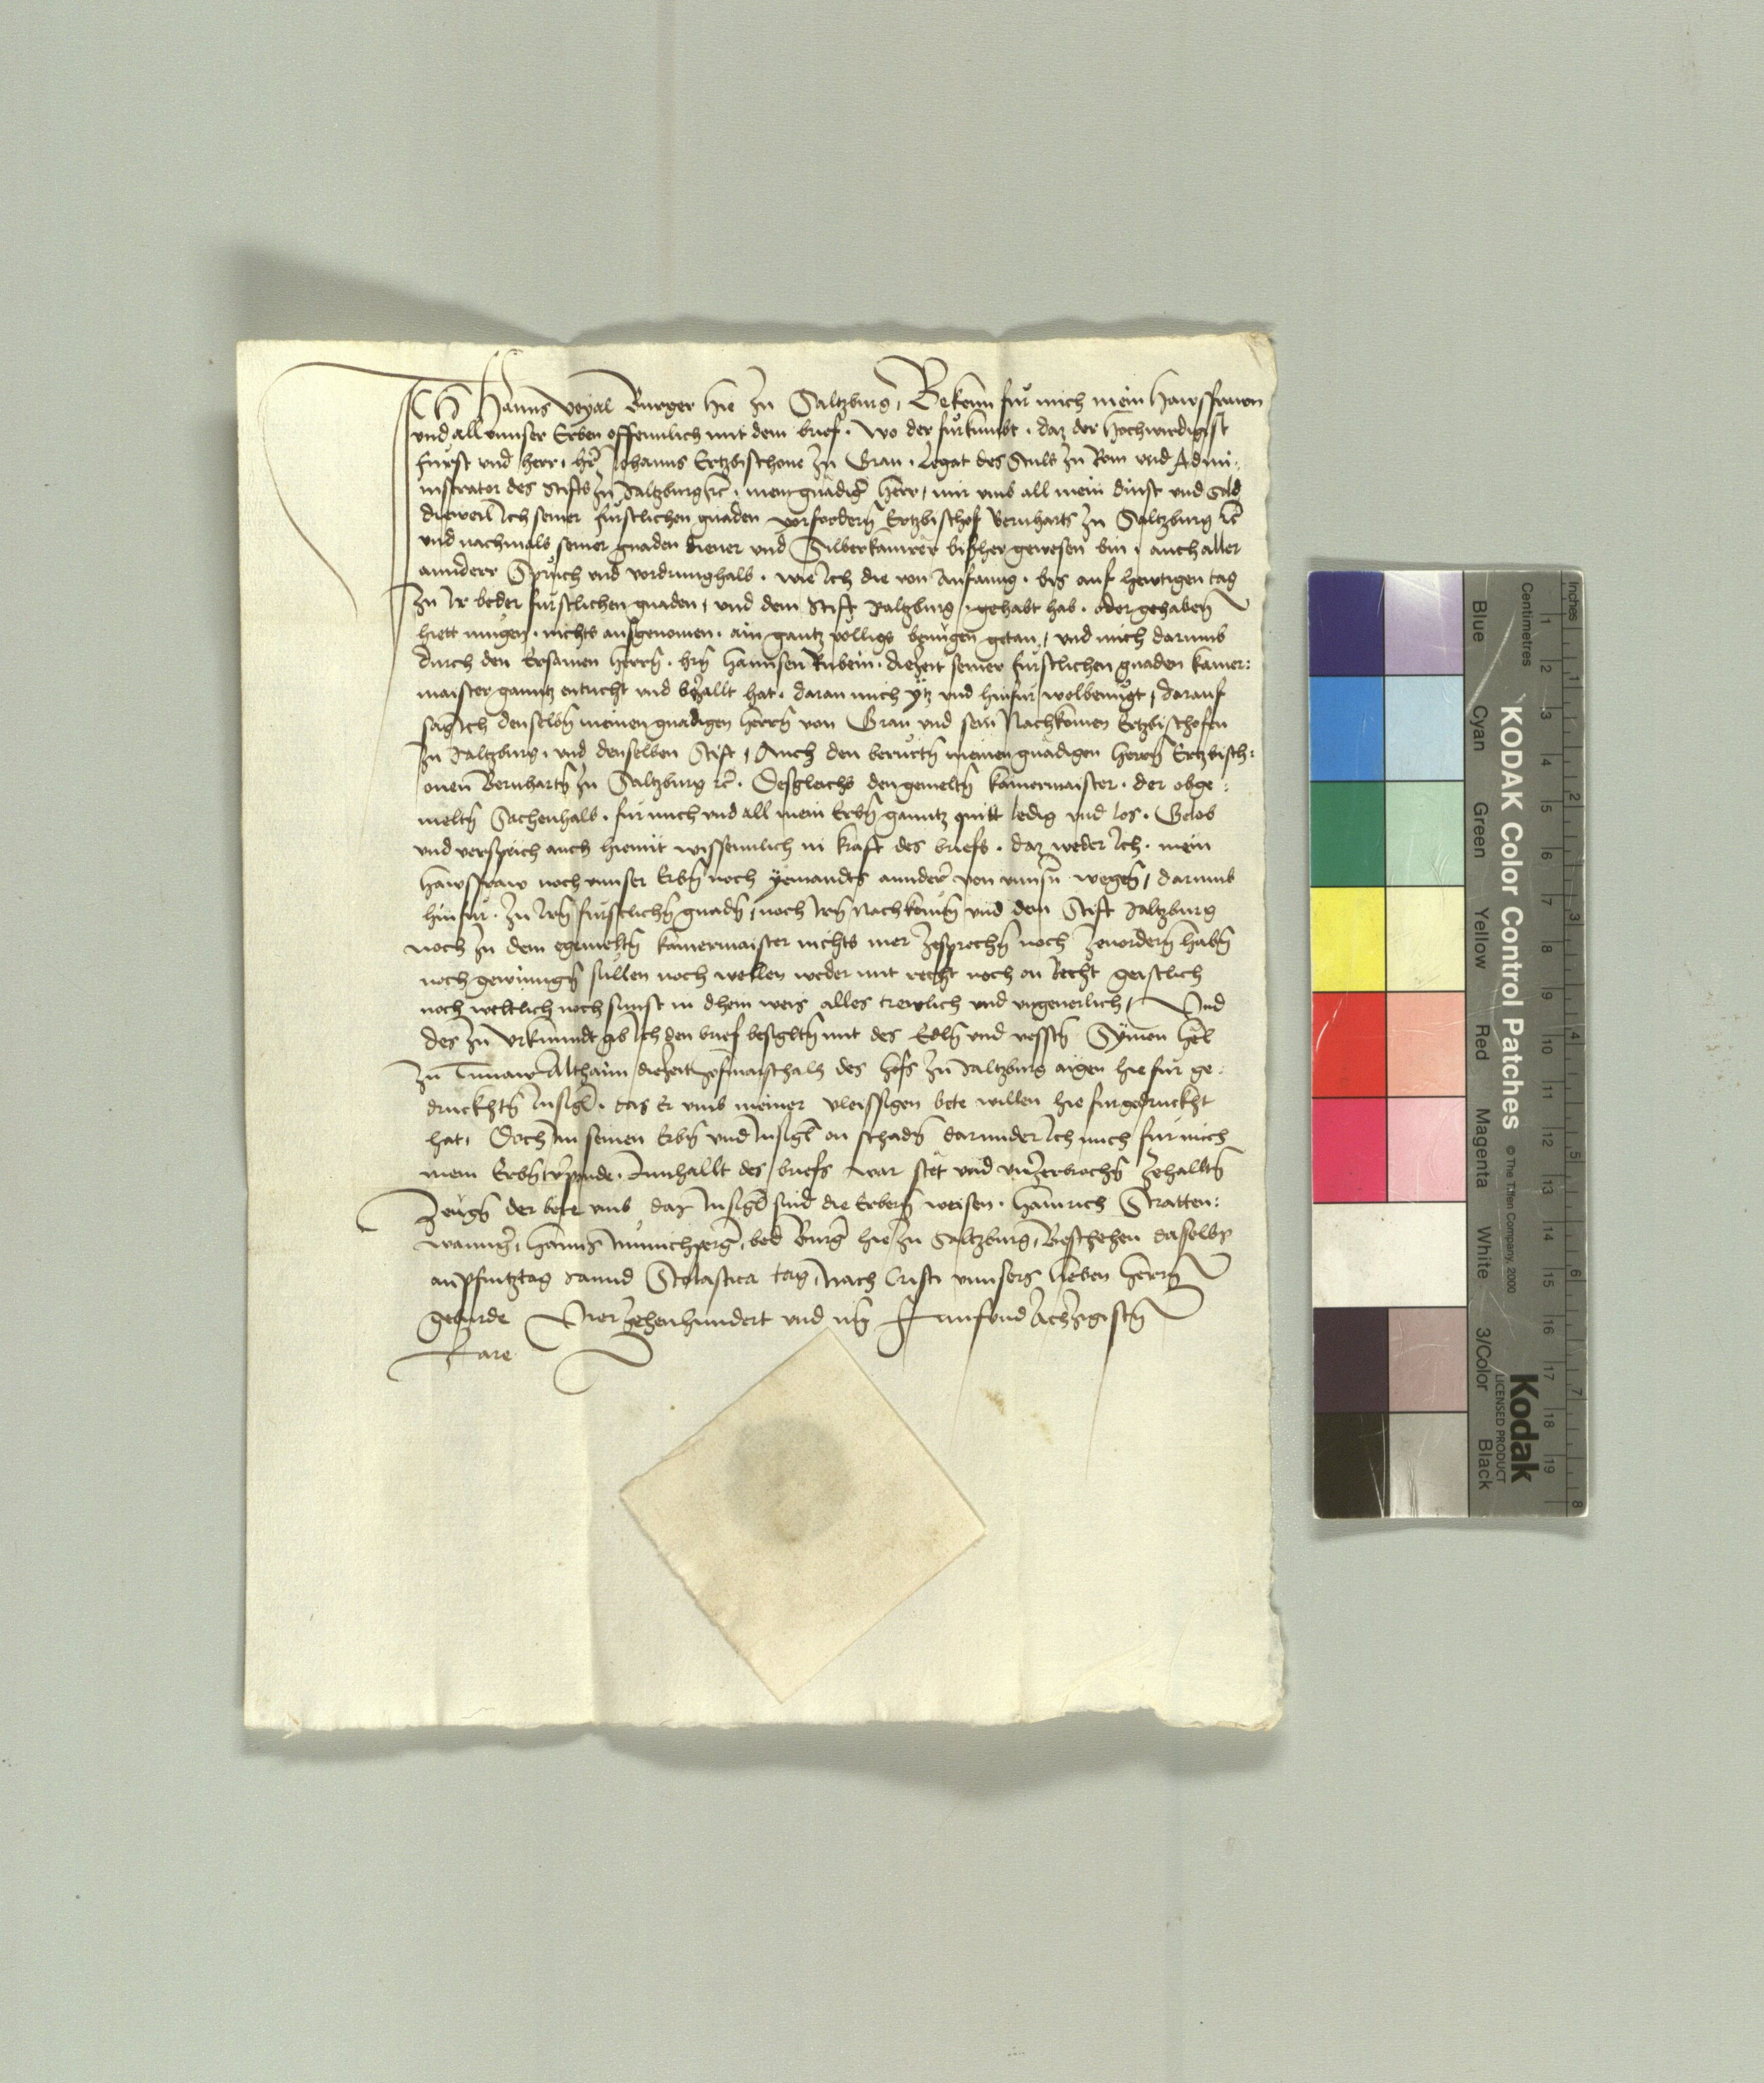 Ich Hanns Voyal Burger hie zu Saltzburg, Bekenn für mich mein Hawsfrawen
vnd all vnnser Erben offennlich mit dem brief. wo der fürkumbt. daz der hochwirdigist
fürst vnd herr, hr̃ Johanns Ertzbischoue zu Gran. Legat des Stuls zu Rom vnd Admi:
nistrator des Stifts zu Saltzburg rc̃. mein gnädigr̃ herr, mir vmb all mein dinst vnd Sold
dieweil Ich seiner fürstlichen gnaden vorfordern̄ Ertzbischof Bernharts zu Saltzburg rc̃
vnd nachmals seiner gnaden diener vnd Silberkamrer bisher gewesen bin, auch aller
annderr Sprüch vnd vordrunghalb. wie Ich die von Anfanng. bis auf hewtigen tag
zu Ir beder fürstlichen gnaden, vnd dem Stift Saltzburg gehabt hab. oder gehaben
hiett mügen. nichts ausgenomen. ain gantz volligs benügen getan, vnd mich darumb
durch den Ersamen herrn̄. hrn̄ Hannsen Rubein. diezeit seiner fürstlichen gnaden kamer:
maister ganntz entricht vnd bezallt hat. daran mich ytz vnd hinfür wolbenügt, darauf
sag Ich denselbn̄ meinen gnadigen herrn̄ von Gran vnd sein Nachkomen Ertzbischofen
zu Saltzburg. vnd denselben Stift, Auch den berürtn̄ meinen gnädigen herrn̄ Ertzbisch:
ouen Bernhartn̄ zu Saltzburg rc̃. Desgleichs den gemeltn̄ kamermaister. der obge:
meltn̄ Sachenhalb. für mich vnd all mein Erbn̄ ganntz quitt ledig vnd los. Gelob
vnd versprich auch hiemit wissennlich in kraft des briefs. daz weder Ich. mein
hawsfraw noch vnnser Erbn̄ noch yemandts annder̃ von vnnsn̄ wegen̄, darumb
hinfür. zu Irn̄ fürstlichn̄ gnadn̄, noch Irn̄ Nachkomen̄ vnd dem Stift Saltzburg
noch zu dem egemeltn̄ kamermaister nichts mer zesprechn̄ noch zeuordern̄ habn̄
noch gewinngn̄ sullen noch wellen weder mit recht noch on Recht geistlich
noch weltlich noch sunst in dhein weis alles trewlich vnd vngeuerlich, Vnd
des zu vrkunndt gib Ich den brief besigltn̄ mit des Edln̄ vnd vesstn̄ Symon
zu Althaim diezeit Hofmarschalh des hofs zu Saltzburg aigen hiefür ge:
druckhtn̄ Insigl. das Er vmb meiner vleissigen bete willen hiefürgedruckht
hat, Doch Im seinen Erbn̄ vnd Insigl on schadn̄ darunder Ich mich für mich
mein Erbn̄ verpinde. Innhallt des briefs war stet vnd vnzerbrochn̄ zehalltn̄
Zeugn̄ der bete vmb daz Insigl sind die Erbern̄ weisen. Hainrich Stratten:
wanngr̃, Hanns Münichpergr̃, bed Burgr̃ hie zu Saltzburg, Beschehen daselbs
an pfintztag sannd Scolastica tag, Nach Cristi vnnsers lieben herrn̄
geburde Vierzehenhundert vnd im̄ Funfvndachtzigistn̄
Jare
Inches
Centimetres
1 2 3 4 5 6 7 8
1 2 3 4 5 6 7 8 9 10 11 12 13 14 15 16 17 18 19
KODAK Color Control Patches
© The Tiffen Company, 2000
Kodak
LICENSED PRODUCT
Blue Cyan Green Yellow Red Magenta White 3/Color Black